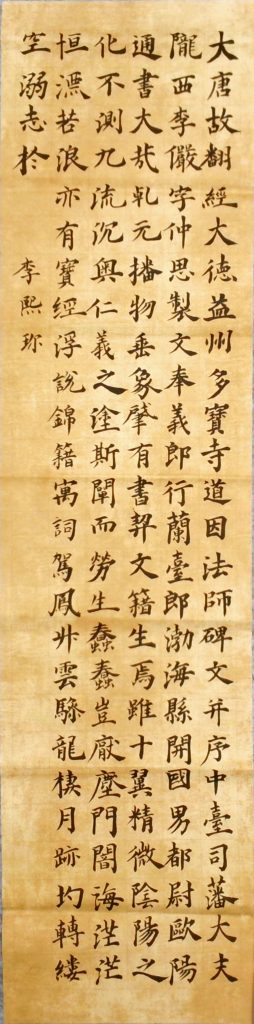 大唐故翻經大德益州多寶寺道因法師碑文并序中臺司藩大夫
隴西李儼字仲思製文奉義郎行蘭臺郎渤海縣開國男都尉歐陽
通書大哉乹元播物垂象肇有書契文籍生焉雖十翼精微陰陽之
化不測九流沉奥仁義之塗斯闡而勞生蠢蠢豈厭塵門闇海茫茫
恒漂苦浪亦有寶經浮說錦籍寓詞駕鳳升雲驂龍棲月跡均轉縷
空溺志於
李熙珎